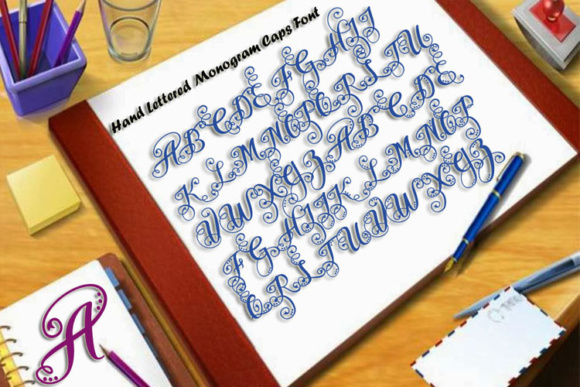 Hand Lettered Monogram Caps Font
A B C D E F G H I J
K L M N O P Q R S T U
V W X Y Z A B C D E
F G H I J K L M N O P
Q R S T U V W X Y Z
A